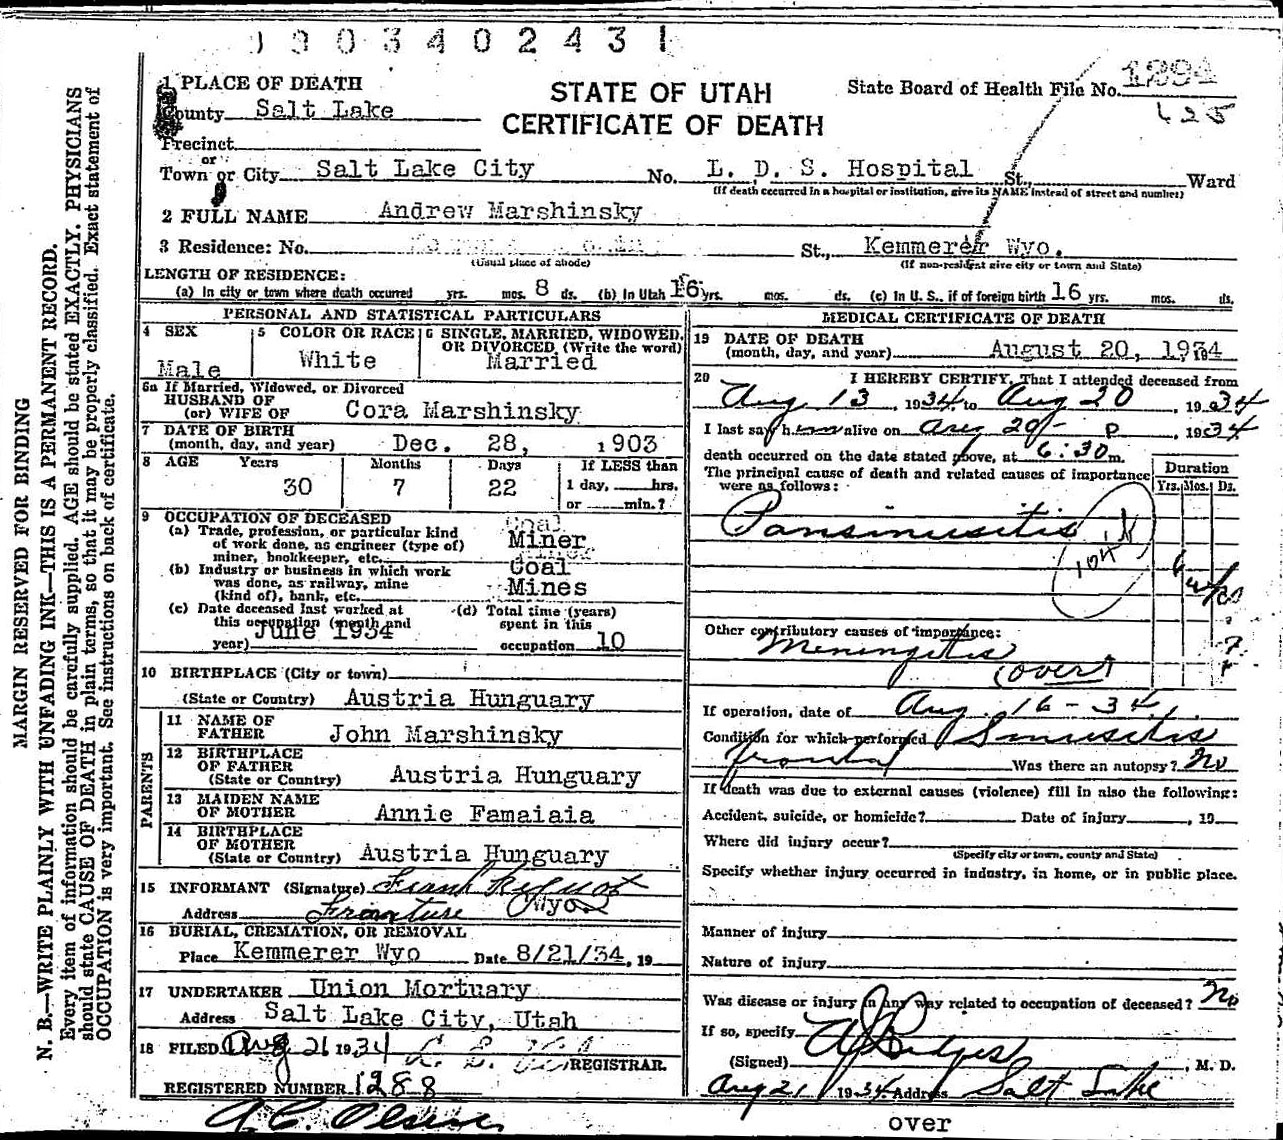 1903402431
1 PLACE OF DEATH
County Salt Lake
Precinct
or
Town or City Salt Lake City No. L. D. S. Hospital St., Ward
(If death occurred in a hospital or institution, give its NAME instead of street and number)
STATE OF UTAH
CERTIFICATE OF DEATH
State Board of Health File No. 1294
425
2 FULL NAME Andrew Marshinsky
3 Residence: No. St., Kemmerer Wyo.
(Usual place of abode) (If non-resident give city or town and State)
LENGTH OF RESIDENCE:
(a) In city or town where death occurred yrs. mos. 8 ds. (b) In Utah 16 yrs. mos. ds. (c) In U. S., if of foreign birth 16 yrs. mos. ds.
PERSONAL AND STATISTICAL PARTICULARS
4 SEX
Male
5 COLOR OR RACE
White
6 SINGLE, MARRIED, WIDOWED,
OR DIVORCED (Write the word)
Married
6a If Married, Widowed, or Divorced
HUSBAND OF
(or) WIFE OF Cora Marshinsky
7 DATE OF BIRTH
(month, day, and year) Dec. 28, 1903
8 AGE Years Months Days If LESS than
30 7 22 1 day, hrs.
or min.?
9 OCCUPATION OF DECEASED
(a) Trade, profession, or particular kind
of work done, as engineer (type of)
miner, bookkeeper, etc.
Coal
Miner
(b) Industry or business in which work
was done, as railway, mine
(kind of), bank, etc.
Coal
Mines
(c) Date deceased last worked at
this occupation (month and
year) June 1934
(d) Total time (years)
spent in this
occupation 10
10 BIRTHPLACE (City or town)
(State or Country) Austria Hunguary
PARENTS
11 NAME OF
FATHER John Marshinsky
12 BIRTHPLACE
OF FATHER
(State or Country) Austria Hunguary
13 MAIDEN NAME
OF MOTHER Annie Famaiaia
14 BIRTHPLACE
OF MOTHER
(State or Country) Austria Hunguary
15 INFORMANT (Signature) Frank
Address Frontier Wyo
16 BURIAL, CREMATION, OR REMOVAL
Place Kemmerer Wyo Date 8/21/34, 19
17 UNDERTAKER Union Mortuary
Address Salt Lake City, Utah
18 FILED Aug 21 1934 REGISTRAR.
REGISTERED NUMBER 1288
A. C. Olsen
MEDICAL CERTIFICATE OF DEATH
19 DATE OF DEATH
(month, day, and year) August 20, 1934
20 I HEREBY CERTIFY, That I attended deceased from
Aug 13 1934, to Aug 20, 1934
I last saw him alive on Aug 20, 1934
death occurred on the date stated above, at 6:30 p m.
The principal cause of death and related causes of importance
were as follows:
Duration
Yrs. Mos. Ds.
Pansinusitis
104
6 wks
Other contributory causes of importance:
Meningitis
(over)
If operation, date of Aug. 16-34
Condition for which performed Sinusitis
frontal Was there an autopsy? No
If death was due to external causes (violence) fill in also the following:
Accident, suicide, or homicide? Date of injury, 19
Where did injury occur?
(Specify city or town, county and State)
Specify whether injury occurred in industry, in home, or in public place.
Manner of injury
Nature of injury
Was disease or injury in any way related to occupation of deceased? No
If so, specify
(Signed) , M. D.
Aug 21 1934 Address Salt Lake
over
MARGIN RESERVED FOR BINDING
N. B.—WRITE PLAINLY WITH UNFADING INK—THIS IS A PERMANENT RECORD.
Every item of information should be carefully supplied. AGE should be stated EXACTLY. PHYSICIANS
should state CAUSE OF DEATH in plain terms, so that it may be properly classified. Exact statement of
OCCUPATION is very important. See instructions on back of certificate.